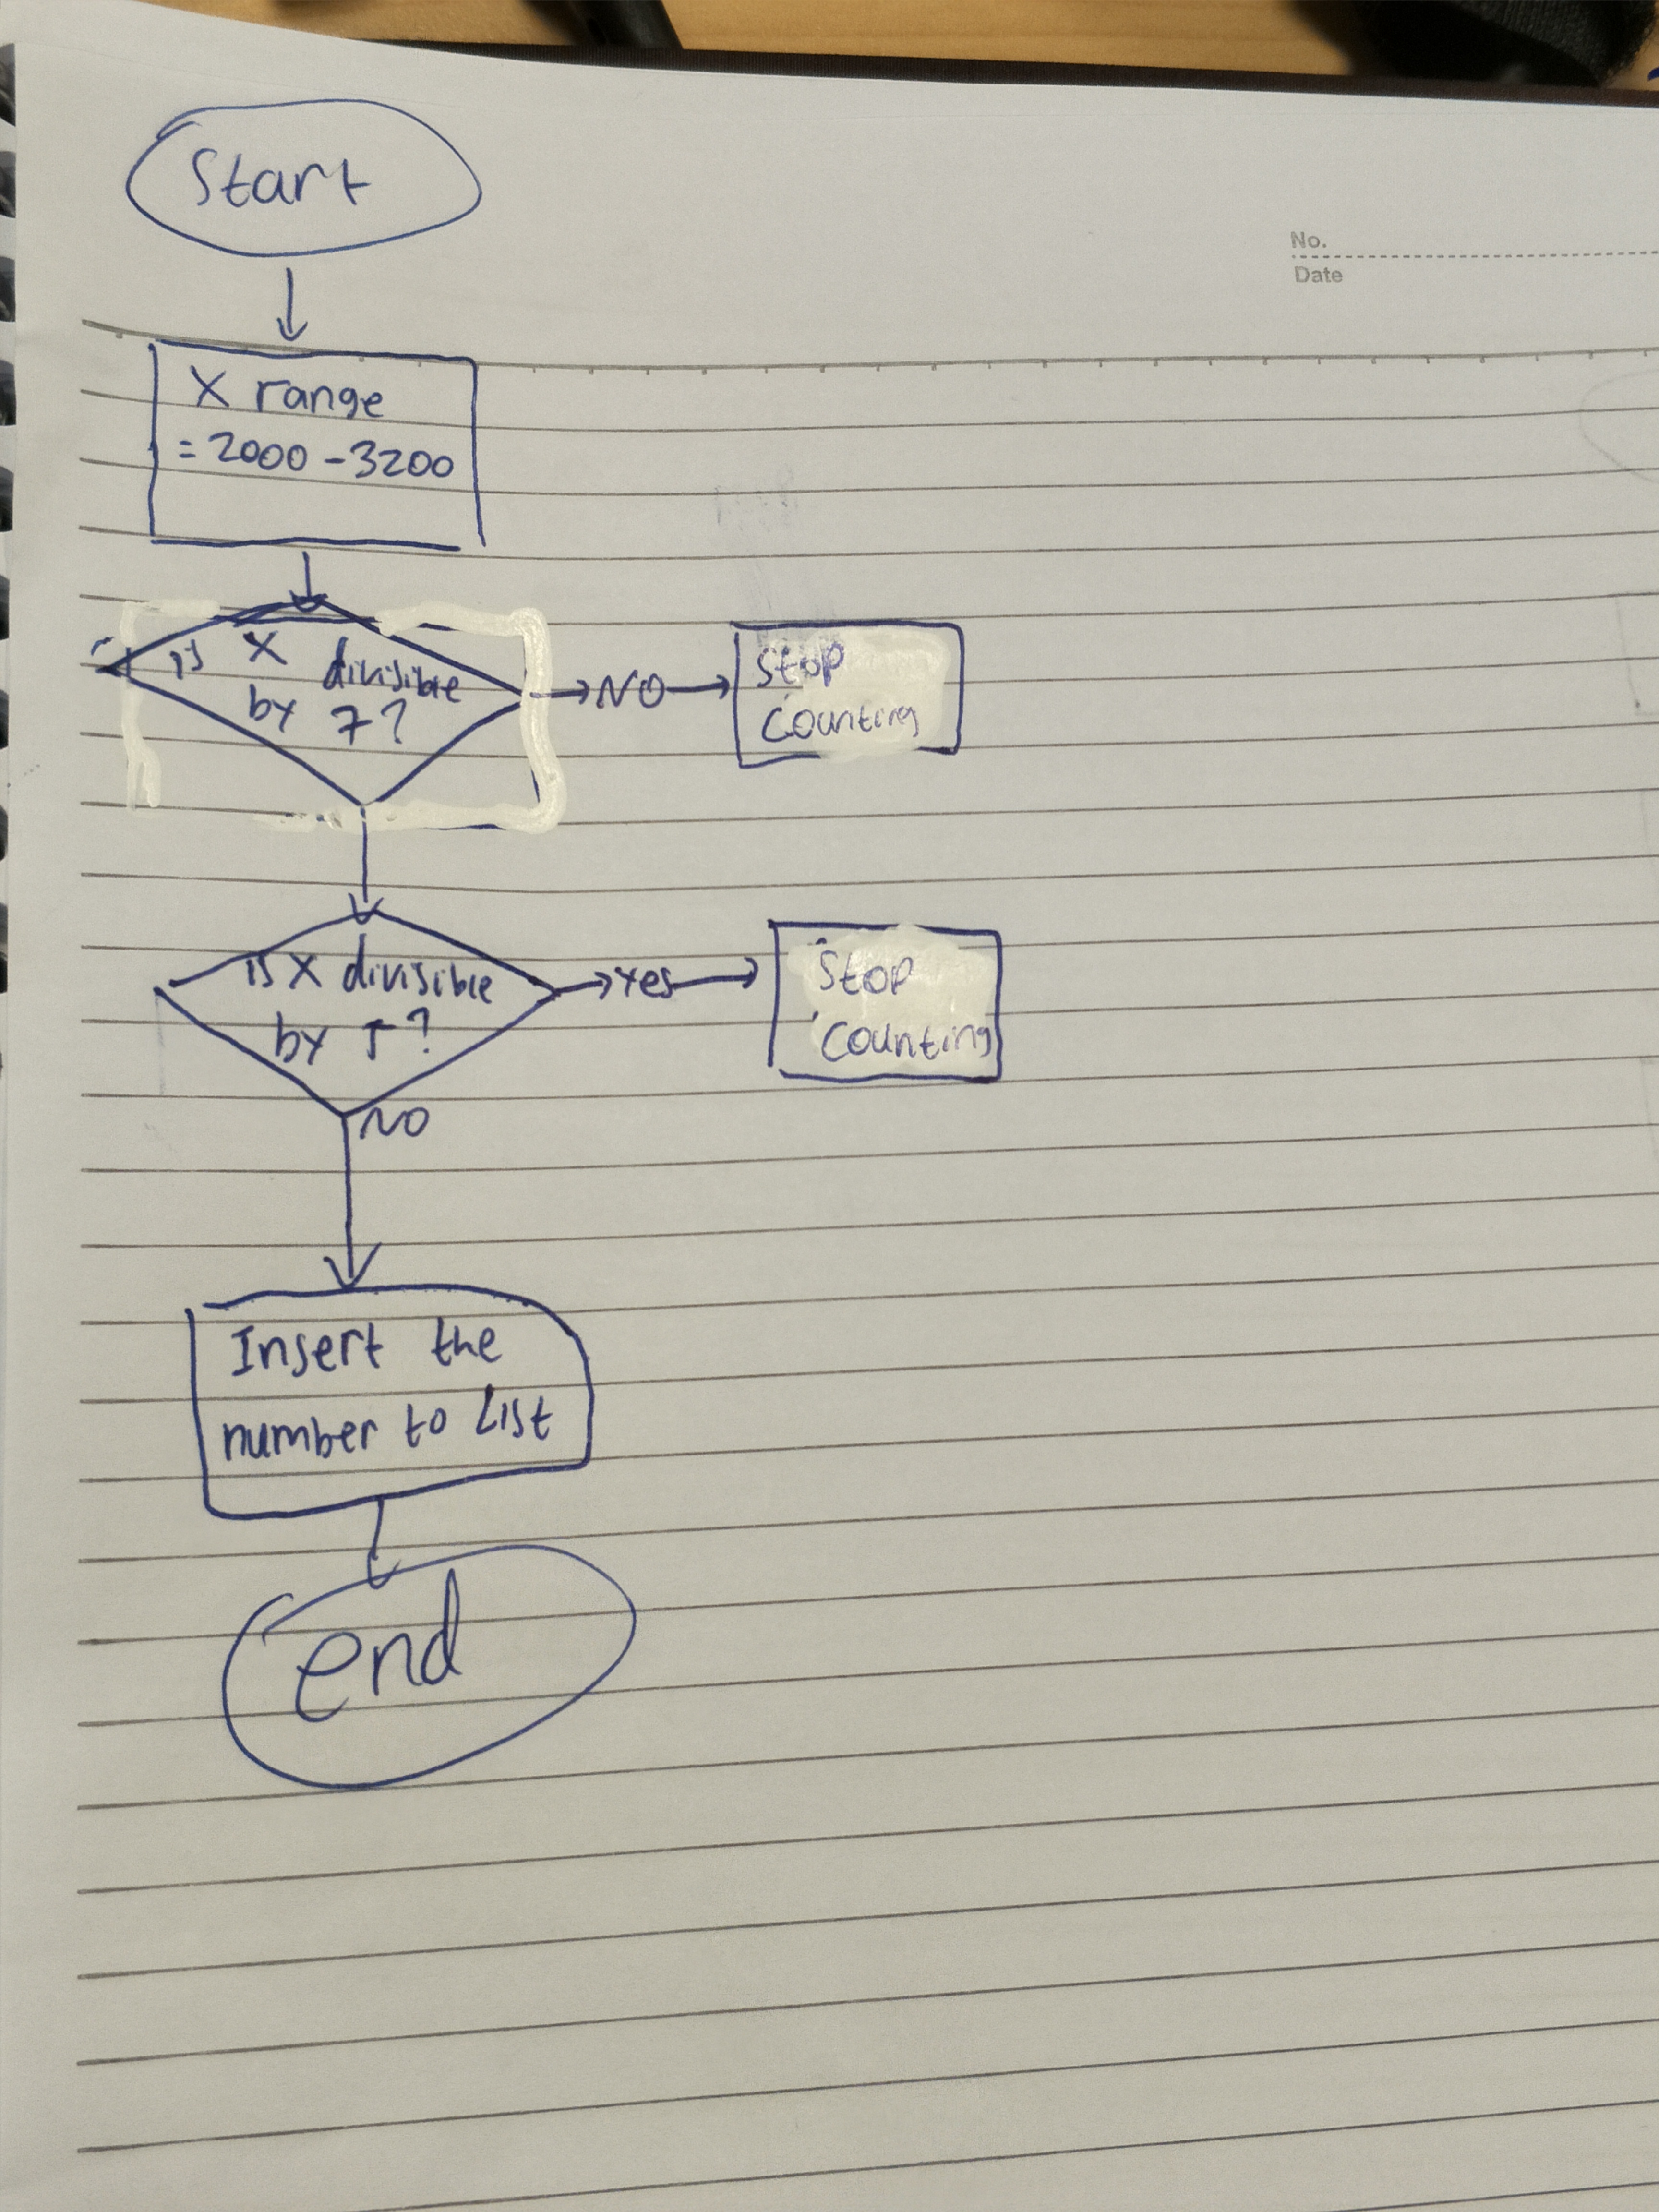 No.
Date
Start
X range
= 2000 - 3200
is X divisible
by 7?
NO
Stop
Counting
is X divisible
by 5?
Yes
Stop
Counting
NO
Insert the
number to List
end